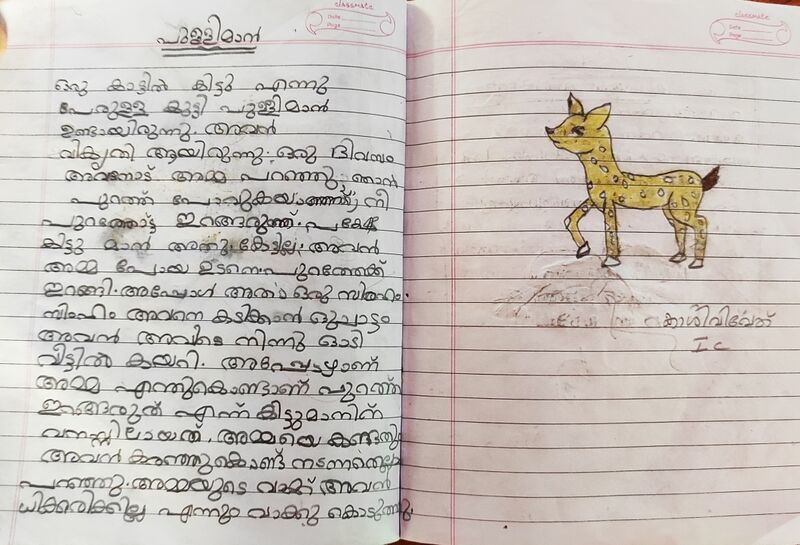 classmate
Date
Page
പുള്ളിമാൻ
ഒരു കാട്ടിൽ കിട്ടു എന്നു
പേരുള്ള കുട്ടി പുള്ളിമാൻ
ഉണ്ടായിരുന്നു. അവൻ
വികൃതി ആയിരുന്നു. ഒരു ദിവസം
അവനോട് അമ്മ പറഞ്ഞു, ഞാൻ
പുറത്ത് പോവുകയാണ്, നീ
പുറത്തോട്ട് ഇറങ്ങരുത്. പക്ഷേ
കിട്ടു മാൻ അതു കേട്ടില്ല. അവൻ
അമ്മ പോയ ഉടനെ പുറത്തേക്ക്
ഇറങ്ങി. അപ്പോൾ അതാ ഒരു സിംഹം.
സിംഹം അവനെ കടിക്കാൻ ഒറ്റചാട്ടം
അവൻ അവിടെ നിന്നു ഓടി
വീട്ടിൽ കയറി. അപ്പോഴാണ്
അമ്മ എന്തുകൊണ്ടാണ് പുറത്ത്
ഇറങ്ങരുത് എന്ന് കിട്ടുമാനിന്
മനസ്സിലായത്. അമ്മയെ കണ്ടതും
അവൻ കരഞ്ഞുകൊണ്ട് നടന്നതെല്ലാം
പറഞ്ഞു. അമ്മയുടെ വാക്ക് അവൻ
ധിക്കരിക്കില്ല എന്നും വാക്കു കൊടുത്തു.
classmate
Date
Page
കാശിവിവേക്
I C